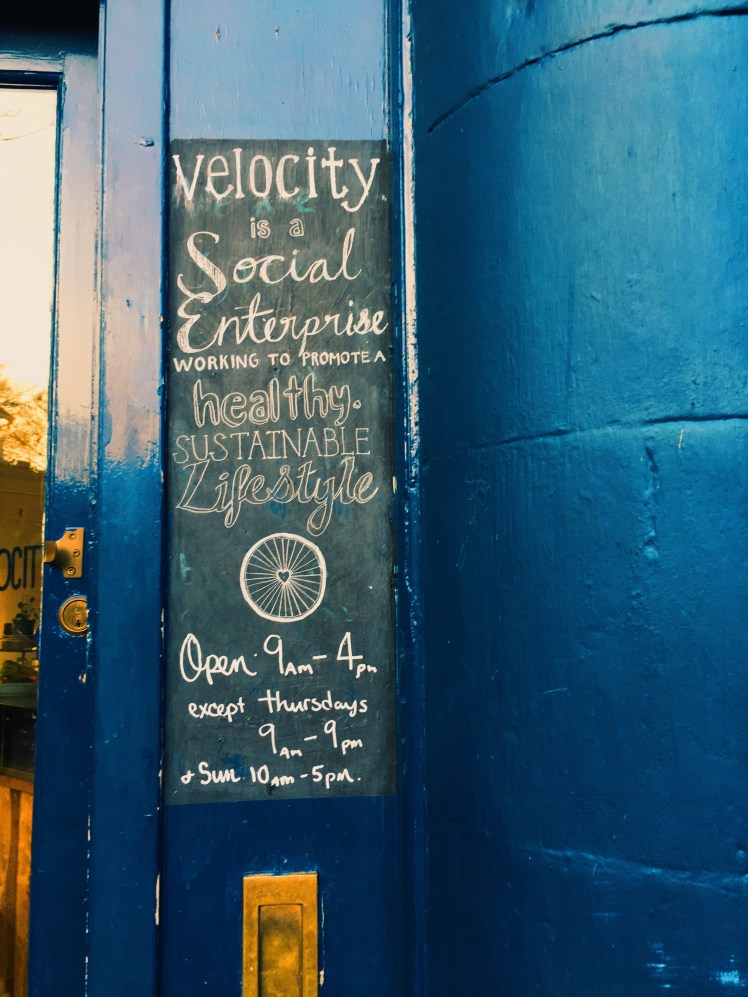 velocity.
is a
Social
Enterprise
WORKING TO PROMOTE A
healthy.
SUSTAINABLE
Lifestyle
Open 9AM-4pm
except thursdays
9AM-9pm
+ Sun 10AM-5pm.
OCIT